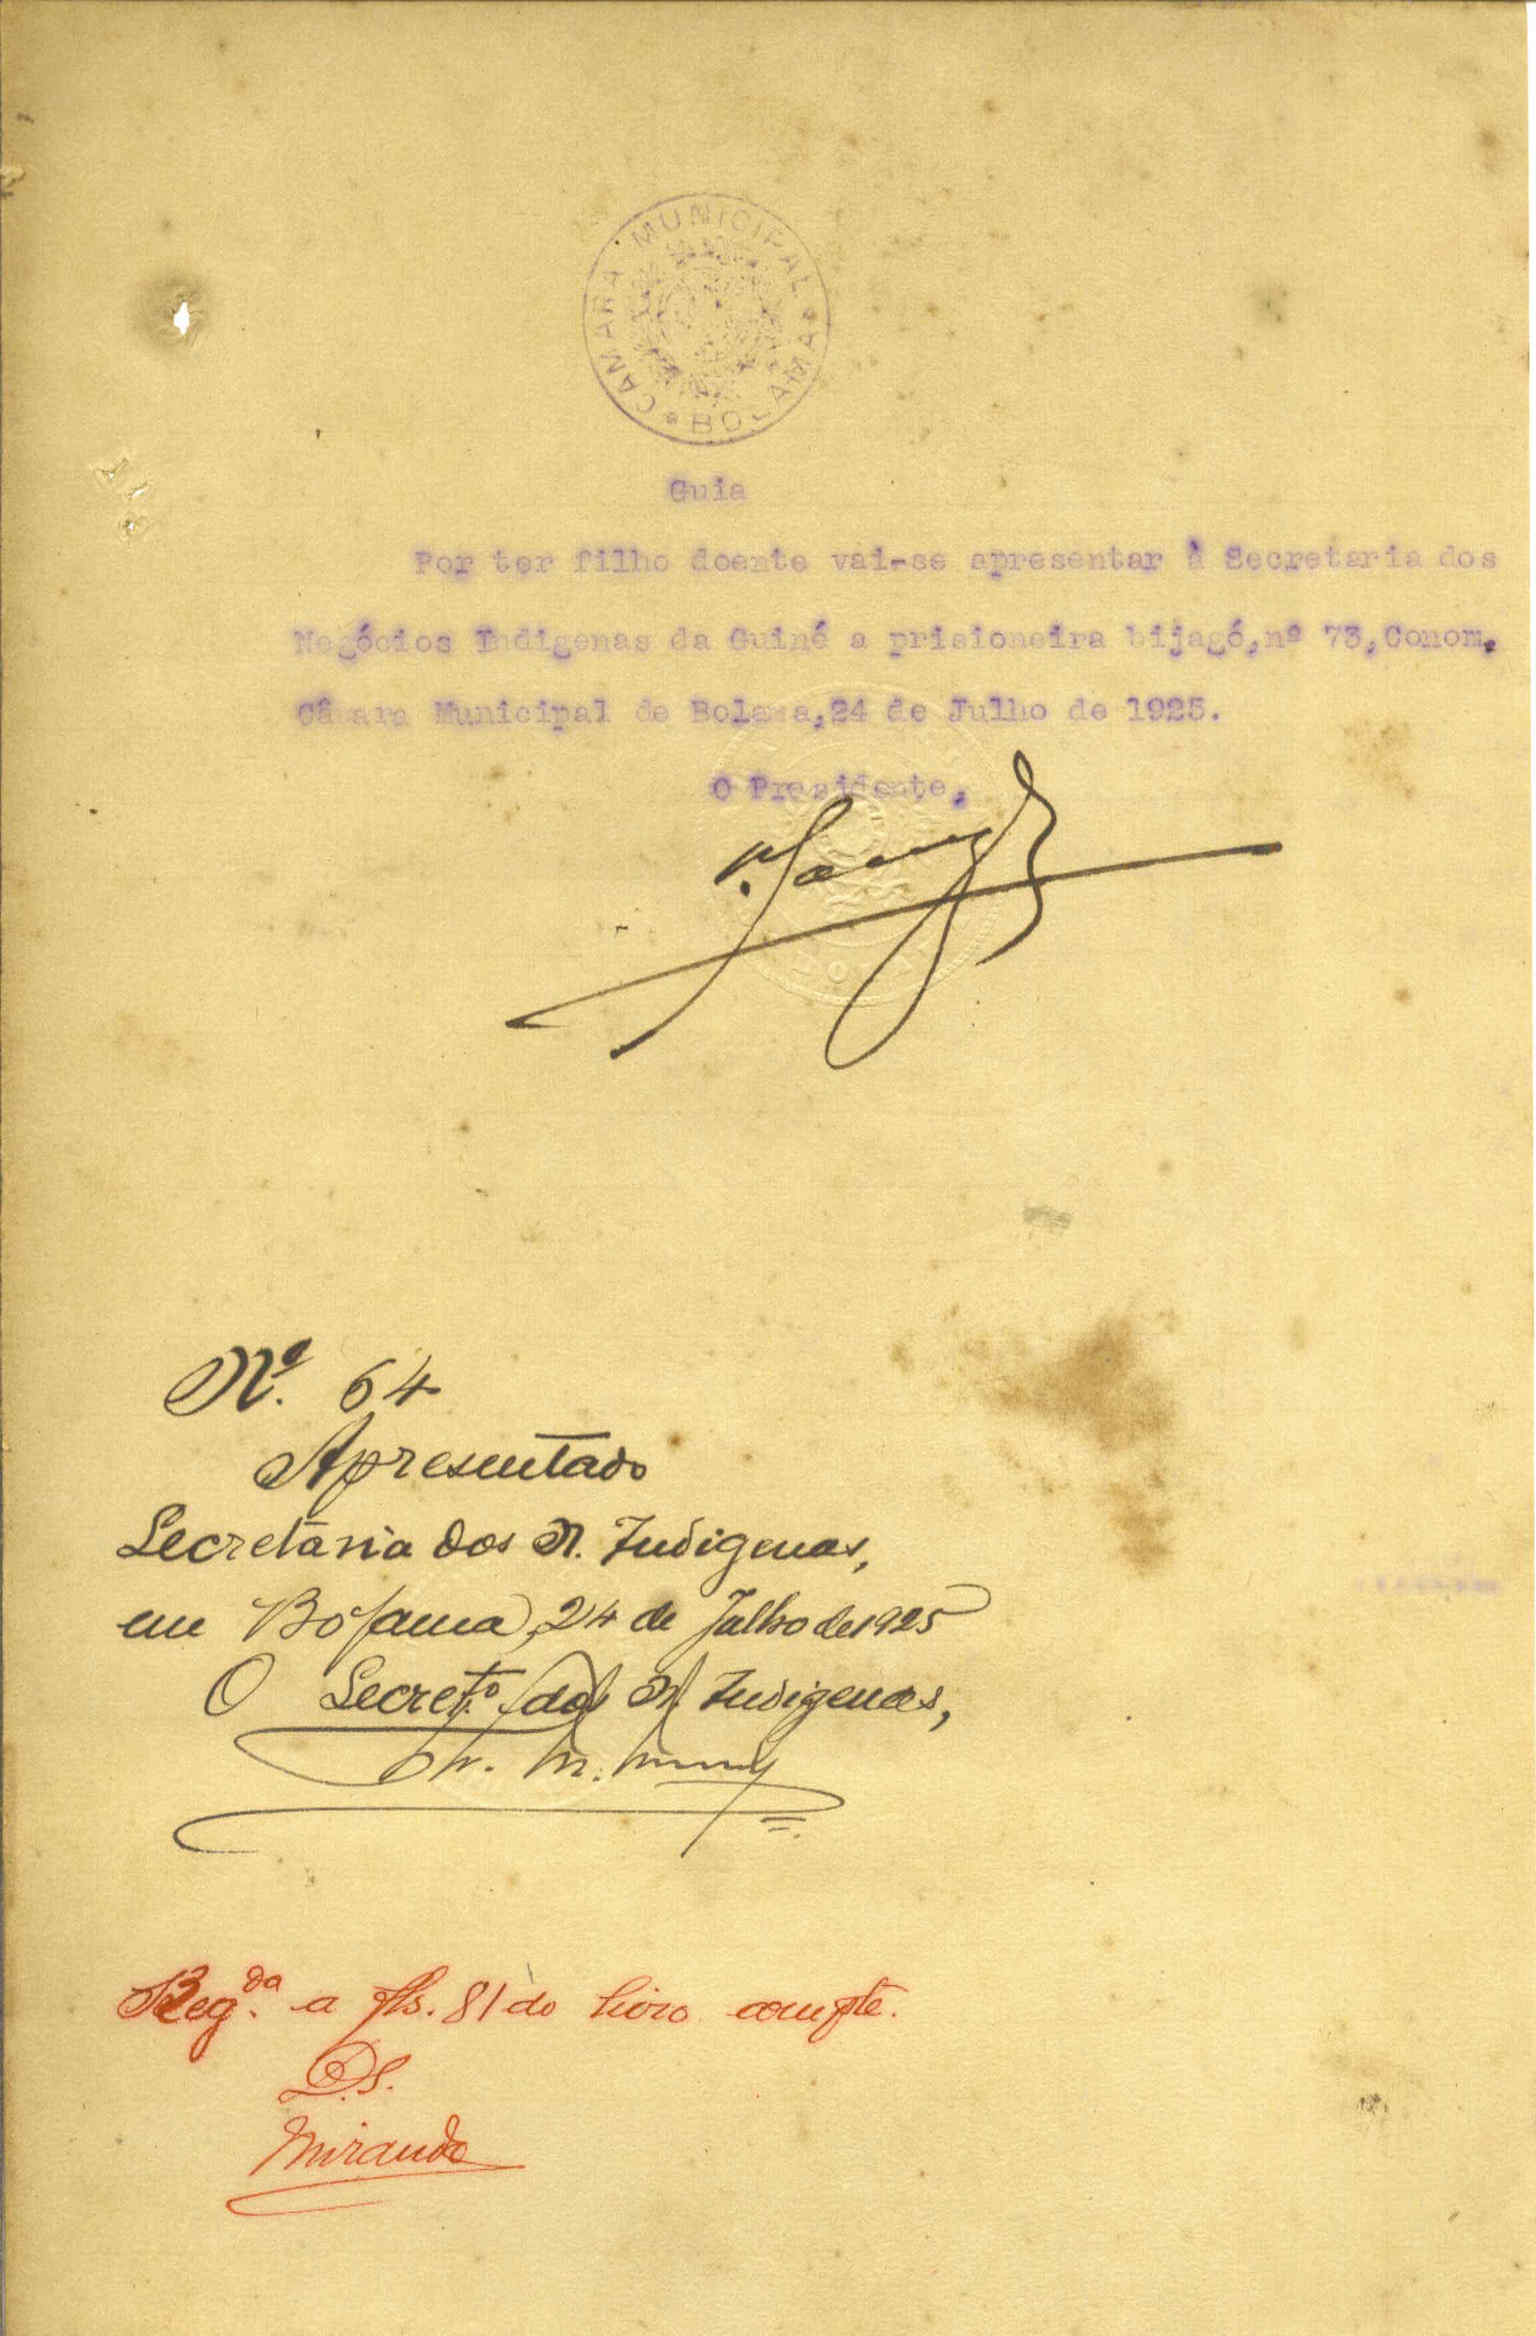 CAMARA MUNICIPAL * BOLAMA *
Guia
Por ter filho doente vai-se apresentar à Secretaria dos
Negócios Indigenas da Guiné a prisioneira bijagó,nº 73,Conom.
Câmara Municipal de Bolama,24 de Julho de 1925.
O Presidente,
Nº. 64
Apresentado
Secretaria dos N. Indigenas,
em Bolama, 24 de Julho de 1925
O Secret.º dos N. Indigenas,
Reg.da a fls. 81 do livro compte.
D.S.
Miranda